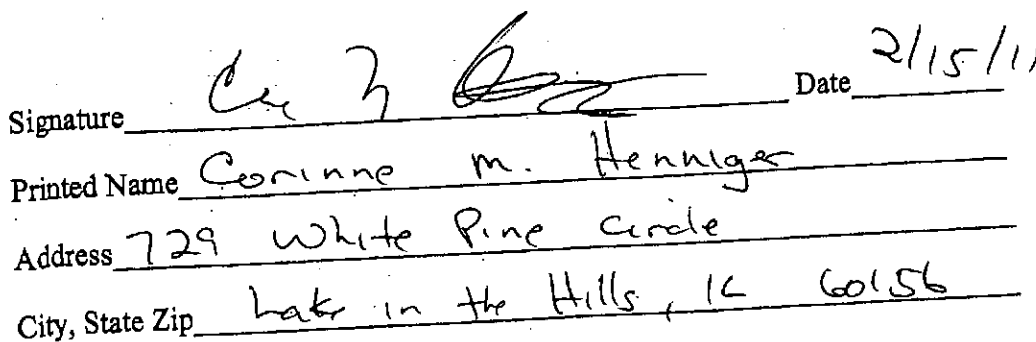 Signature Date 2/15/11
Printed Name Corinne M. Henniger
Address 729 White Pine Circle
City, State Zip Lake in the Hills, IL 60156